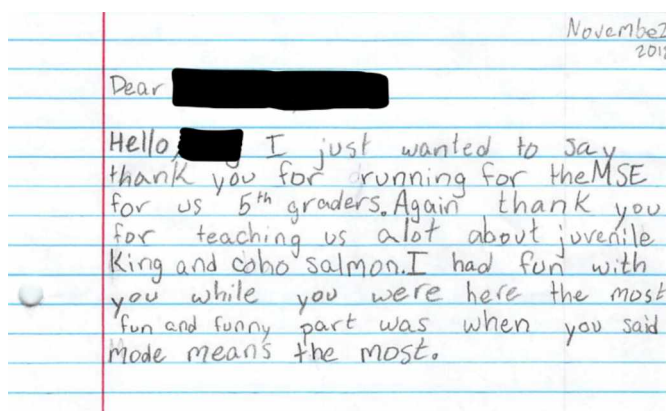 November
201
Dear
Hello, I just wanted to say
thank you for running for the MSE
for us 5th graders. Again thank you
for teaching us alot about juvenile
King and coho salmon. I had fun with
you while you were here the most
fun and funny part was when you said
Mode means the most.